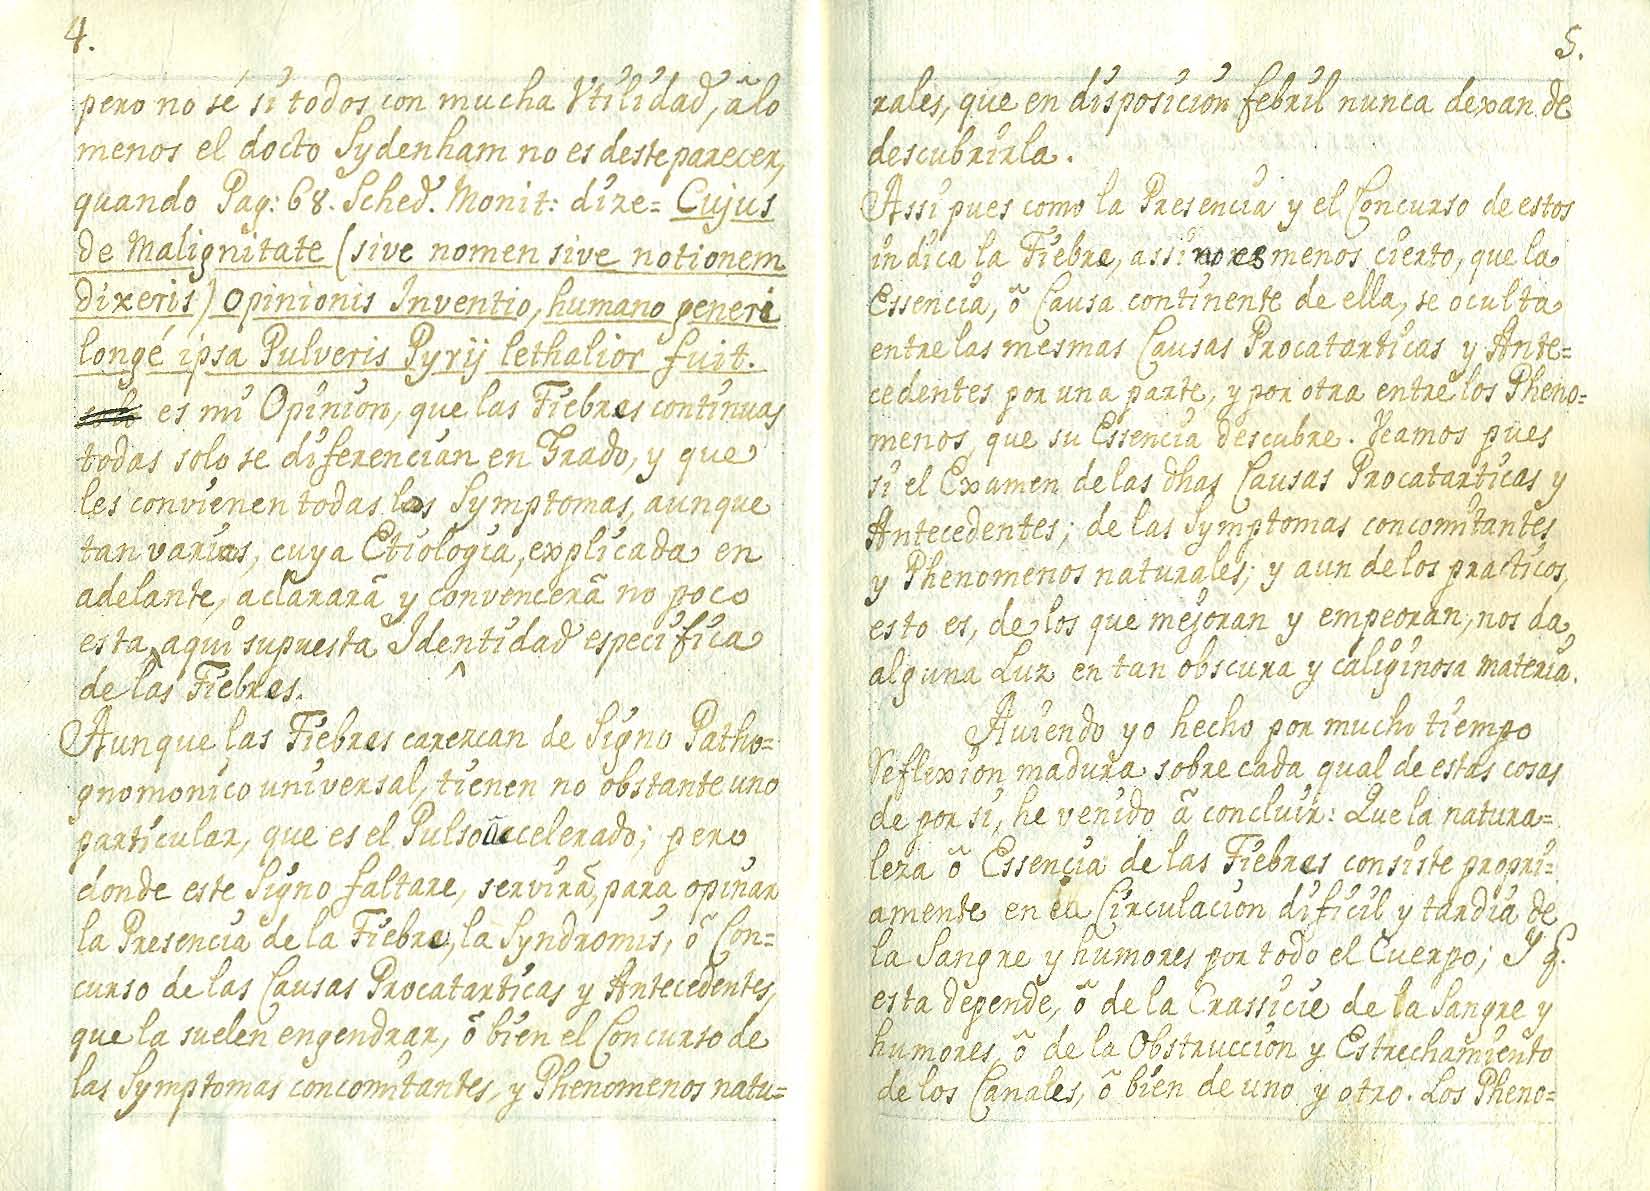 4.
pero no sé si todos con mucha Vtilidad, ã lo
menos el docto Sydenham no es deste parecer,
quando Pag: 68. Sched. Monit: dize= Cujus
de Malignitate (sive nomen sive notionem
dixeris) Opinionis Inventio, humano generi
longé ipsa Pulveris Pyrij lethalior fuit.
es mi Opinion, que las Fiebres continuas
todas solo se diferencian en Grado, y que
les convienen todas las Symptomas, aunque
tan varias, cuya Etiologia, explicada en
adelante, aclararã y convencerã no poco
esta, aqui supuesta Identidad especifica
de las Fiebres.
Aunque las Fiebres carezcan de Signo Patho=
gnomonico universal, tienen no obstante uno
particular, que es el Pulso acelerado; pero
donde este Signo faltare, servirã, para opinar
la Presencia de la Fiebre, la Syndromis, õ Con=
curso de las Causas Procatarticas y Antecedentes,
que la suelen engendrar, õ bien el Concurso de
las Symptomas concomitantes, y Phenomenos natu=
5.
rales, que en disposicion febril nunca dexan de
descubrirla.
Assi pues como la Presencia y el Concurso de estos
indica la Fiebre, assi no es menos cierto, que la
Essencia, õ Causa continente de ella, se oculta
entre las mesmas Causas Procatarticas y Ante=
cedentes por una parte, y por otra entre los Pheno=
menos, que su Essencia descubre. Veamos pues
si el Examen de las dhas Causas Procatarticas y
Antecedentes; de las Symptomas concomitantes
y Phenomenos naturales; y aun de los practicos,
esto es, de los que mejoran y empeoran, nos da
alguna Luz en tan obscura y caliginosa materia.
Aviendo yo hecho por mucho tiempo
Reflexion madura sobre cada qual de estas cosas
de por si, he venido ã concluir: Que la natura=
leza õ Essencia de las Fiebres consiste propri=
amente en la Circulacion dificil y tardia de
la Sangre y humores por todo el Cuerpo; Y q.
esta depende, õ de la Crassicie de la Sangre y
humores, õ de la Obstruccion y Estrechamiento
de los Canales, õ bien de uno y otro. Los Pheno=